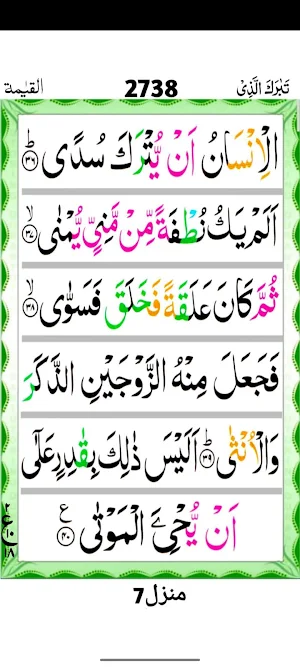 القيٰمة 2738 تَبٰرَكَ الَّذِىْ
الْاِنْسَانُ اَنْ يُّتْرَكَ سُدًى ؕ﴿۳۶﴾
اَلَمْ يَكُ نُطْفَةً مِّنْ مَّنِىٍّ يُّمْنٰى ۙ﴿۳۷﴾
ثُمَّ كَانَ عَلَقَةً فَخَلَقَ فَسَوّٰى ۙ﴿۳۸﴾
فَجَعَلَ مِنْهُ الزَّوْجَيْنِ الذَّكَرَ
وَالْاُنْثٰى ؕ﴿۳۹﴾ اَلَيْسَ ذٰلِكَ بِقٰدِرٍ عَلٰٓى
اَنْ يُّحْیِۦَ الْمَوْتٰى ﴿۴۰﴾ ع
منزل7